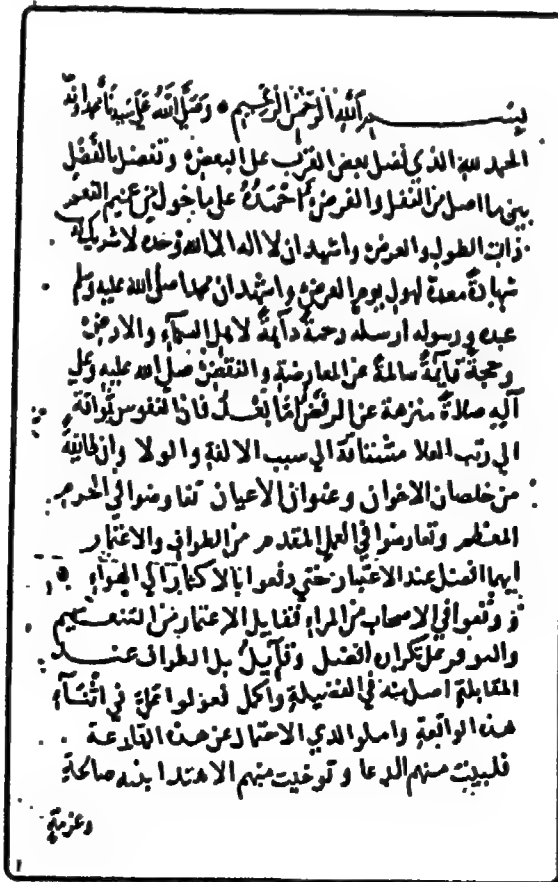 بسم الله الرحمن الرحيم * وصلى الله على سيدنا محمد واله
الحمد لله الذي فضل بعض القرب على البعض وتفضل بالفضل
بينهما اصل من النفل والفرض احمده على ما خول من عميم النعم
ذات الطول والعرض واشهد ان لا اله الا الله وحده لا شريك له
شهادة معدة لهول يوم العرض واشهد ان محمدا صلى الله عليه وسلم
عبده ورسوله ارسله رحمة دآيمة لاهل السمآء والارض
وحجة قايمة سالمة عن المعارضة والنقض صلى الله عليه وعلى
آله صلاة منزهة عن الرفض اما بعد فان النفوس تواقة
الى رتب العلا مشتاقة الى سبب الالفة والولا وان
من خلصان الاخوان وعنوان الاعيان تفاوضوا في الحرم
المعظم وتعارضوا في العمل المقدم من الطواف والاعتمار
ايهما افضل عند الاعتبار حتى دفعوا بالاكثار الى الهوآء
ووقعوا في الاصحاب من المرآء فقايل الاعتمار من التنعيم
والموفر على تكراره افضل وقآيل بل الطواف عند
المقابلة اصل منه في الفضيلة واكمل فعولوا على في اثنآء
هذه الواقعة واملوا لدي الاحتمال عن هذه القارعة
فلبيت منهم الدعا وتوخيت منهم الاهتدا بنية صالحة
وعزمة
١